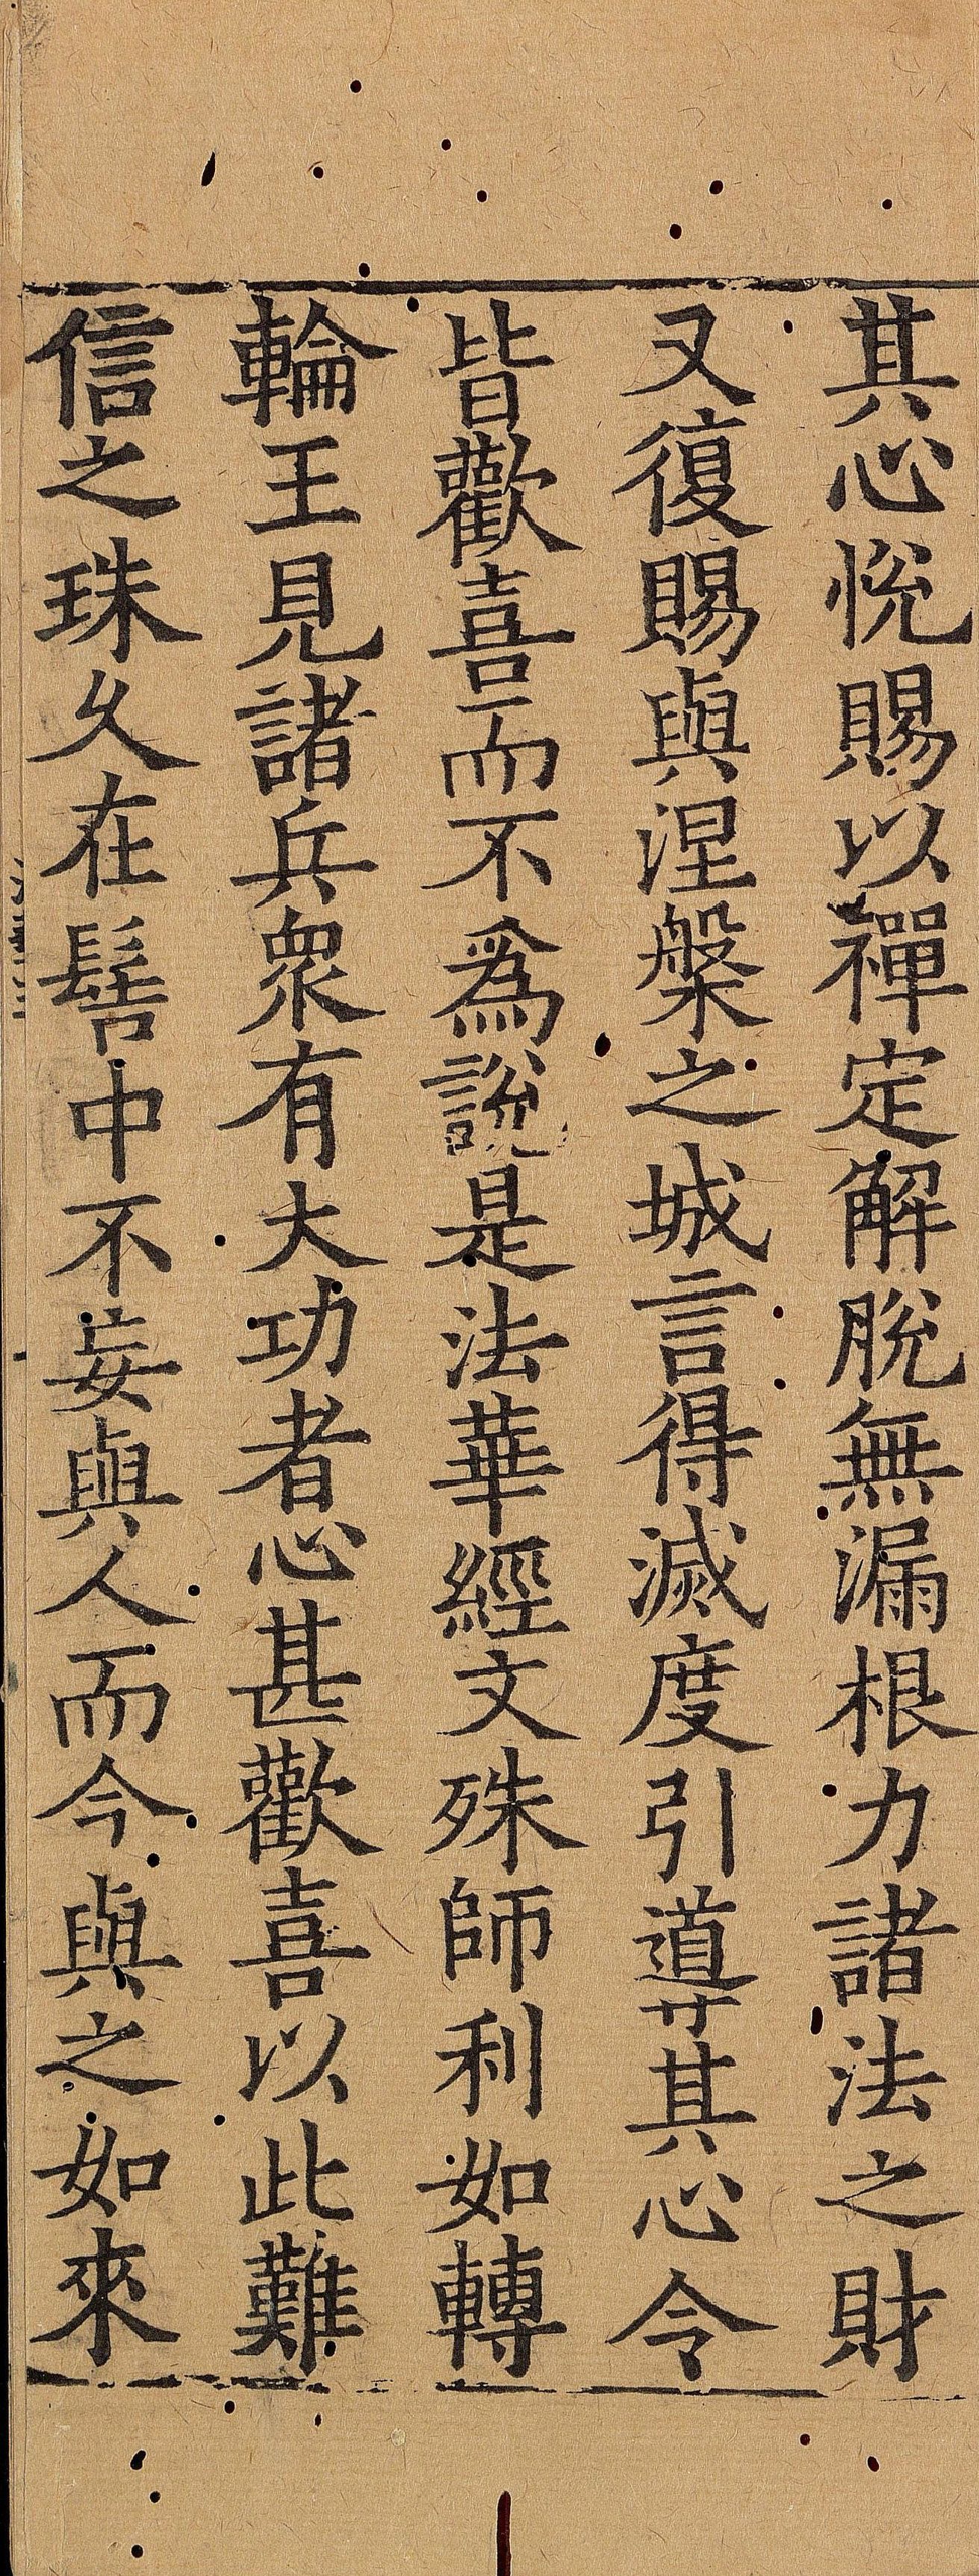 其心悅賜以禪定解脫無漏根力諸法之財
又復賜與涅槃之城言得滅度引導其心令
皆歡喜而不為說是法華經文殊師利如轉
輪王見諸兵衆有大功者心甚歡喜以此難
信之珠久在髻中不妄與人而今與之如來